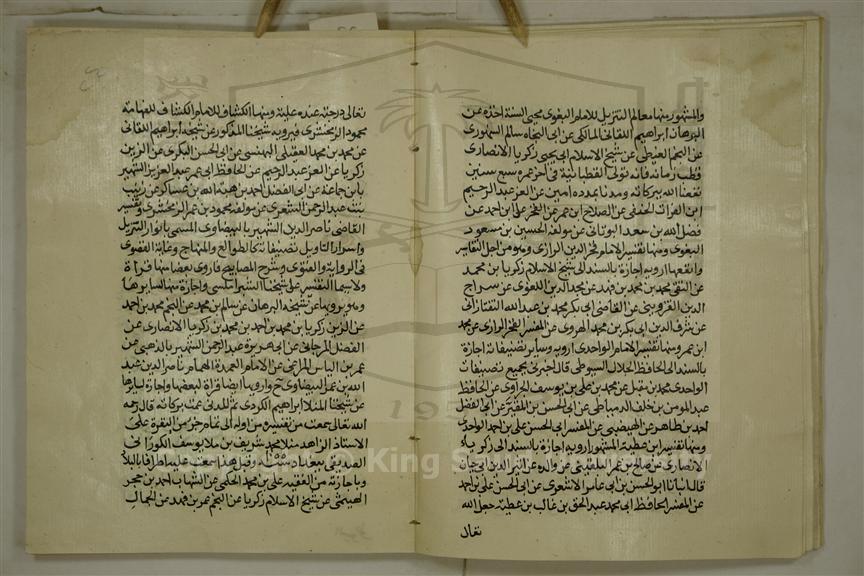 والمشهور منها معالم التنزيل للامام البغوي محيي السنة اخذه عن
البرهان ابراهيم اللقاني المالكي عن ابي النجاه سالم السنهوري
عن النجم الغيطي عن شيخ الاسلام ابي يحيى زكريا الانصاري
قطب زمانه فانه تولى القطبانية في آخر عمره سبع سنين
نفعنا الله ببركاته ومدنا بمدده امين عن العز عبد الرحيم
ابن الفرات الحنفي عن الصلاح ابن عمر عن الفخر علي ابن احمد عن
فضل الله بن سعد عن مولفه الحسين بن مسعود
البغوي ومنها تفسير الامام فخر الدين الرازي وهو من اجل التفاسير
وانفعها ارويه اجازة بالسند الى شيخ الاسلام زكريا بن محمد
عن التقي محمد بن محمد بن فهد عن مجد الدين اللغوي عن سراج
الدين القزويني عن القاضي ابي بكر محمد بن عبد الله التفتازاني
عن شرف الدين ابي بكر بن محمد الهروي عن المفسر الفخر الرازي محمد
ابن عمر ومنها تفسير الامام الواحدي ارويه وساير تصنيفاته اجازة
بالسند الى الحافظ الجلال السيوطي قال اخبرني بجميع تصنيفات
الواحدي محمد بن مقبل عن محمد بن علي بن يوسف الحراوي عن الحافظ
عبد المومن بن خلف الدمياطي عن ابي الحسن بن المقير عن ابي الفضل
احمد بن طاهر عن المفسر ابي الحسن علي بن احمد الواحدي
ومنها تفسير ابن عطية المشهور ارويه اجازة بالسند الى زكرياء
الانصاري عن صالح بن عمر البلقيني عن والده عن اثير الدين ابي حيان
قال انبأنا ابو الحسن بن ابي عامر الاشعري عن ابي الحسن علي بن احمد
عن المفسر الحافظ ابي محمد عبد الحق بن غالب بن عطية جعل الله
تعالى
تعالى درجته عنده علية ومنها الكشاف للامام الكشاف للفهامة
محمود الزمخشري فيرويه شيخنا المذكور عن شيخه ابراهيم اللقاني
عن محمد بن محمد العقيلي البهنسي عن ابي الحسن البكري عن الزين
زكريا عن العز عبد الرحيم عن الحافظ ابي عمر عبد العزيز الشهير
بابن جماعة عن ابي الفضل احمد بن هبة الله بن عساكر عن زينب
بنت عبد الرحمن الشعري عن مولفه محمود بن عمر الزمخشري وتفسير
القاضي ناصر الدين الشهير بالبيضاوي المسمى بانوار التنزيل
واسرار التاويل تصنيفاته كالطوالع والمنهاج وغاية القصوى
في الرواية والفتوى وشرح المصابيح فاروي بعضا منها قراة
ولاسيما التفسير عن شيخنا واجازة منها لسايرها
وهو يرويها عن شيخه البرهان عن سالم بن محمد عن النجم محمد بن احمد
عن الزين زكريا بن محمد بن احمد بن محمد بن زكريا الانصاري عن
الفضل المرجاني عن ابي هريرة عبد الرحمن الشهير بالذهبي عن
عمر بن الياس المراغي عن الامام العمدة الهمام ناصر الدين عبد
الله بن عمر البيضاوي ح وارويها ايضا قراة لبعضها واجازة لسايرها
عن شيخنا المنلا ابراهيم الكردي ثم المدني عمت بركاته قال رحمه
الله تعالى سمعت من تفسيره من اوله الى تمام جزء من البقرة على
الاستاذ الزاهد منلا محمد شريف بن ملا يوسف الكوراني
الصديقي ببغداد وقبل هذا سمعت عليه اطرافا بالبلاد
وباجازته من الفقيه علي بن محمد الحكمي عن الشهاب احمد بن حجر
الهيثمي عن شيخ الاسلام زكريا عن النجم عمر بن فهد عن الجمال
© King S
195